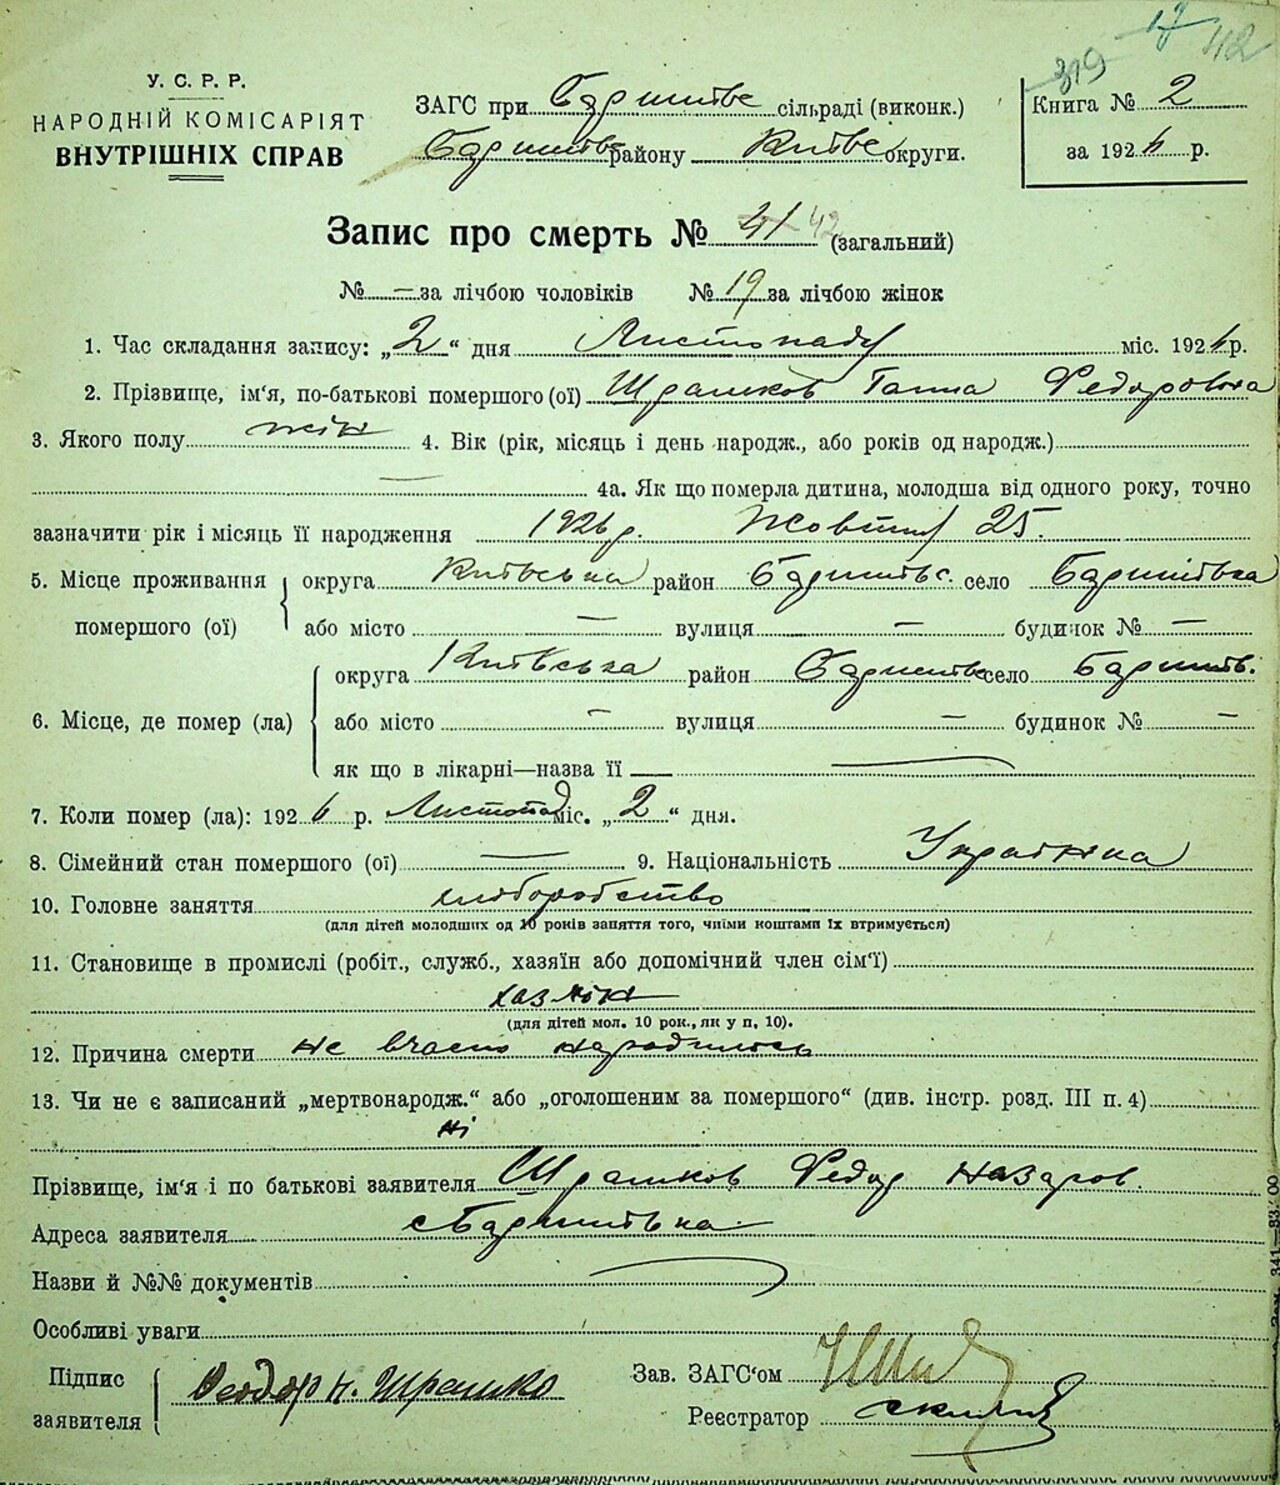 17 42
319
У. С. Р. Р.
НАРОДНІЙ КОМІСАРІЯТ
ВНУТРІШНІХ СПРАВ
ЗАГС при Баришівс сільраді (виконк.)
Баришівс району Київс округи.
Книга № 2
за 1926 р.
Запис про смерть № 41 42 (загальний)
№ — за лічбою чоловіків № 19 за лічбою жінок
1. Час складання запису: „2“ дня Листопаду міс. 1926 р.
2. Прізвище, ім‘я, по-батькові помершого (ої) Шрамков Ганна Федоровна
3. Якого полу жін 4. Вік (рік, місяць і день народж., або років од народж.)
— 4а. Як що померла дитина, молодша від одного року, точно
зазначити рік і місяць її народження 1926 р. Жовтня 25.
5. Місце проживання помершого (ої) округа Київська район Баришівс. село Баришівка
або місто — вулиця — будинок № —
6. Місце, де помер (ла) округа Київська район Баришівс село Баришів.
або місто — вулиця — будинок № —
як що в лікарні—назва її —
7. Коли помер (ла): 1926 р. Листопад міс. „2“ дня.
8. Сімейний стан помершого (ої) — 9. Національність Українка
10. Головне заняття хліборобство
(для дітей молодших од 10 років заняття того, чиїми коштами їх втримується)
11. Становище в промислі (робіт., служб., хазяїн або допомічний член сім‘ї)
хазяїн
(для дітей мол. 10 рок., як у п. 10).
12. Причина смерти не вчасно народилась
13. Чи не є записаний „мертвонародж.“ або „оголошеним за помершого“ (див. інстр. розд. III п. 4)
ні
Прізвище, ім‘я і по батькові заявителя Шрамков Федор Назаров.
Адреса заявителя с Баришівка
Назви й №№ документів
Особливі уваги
Підпис заявителя Феодор Н. Шрамко
Зав. ЗАГС‘ом
Реєстратор